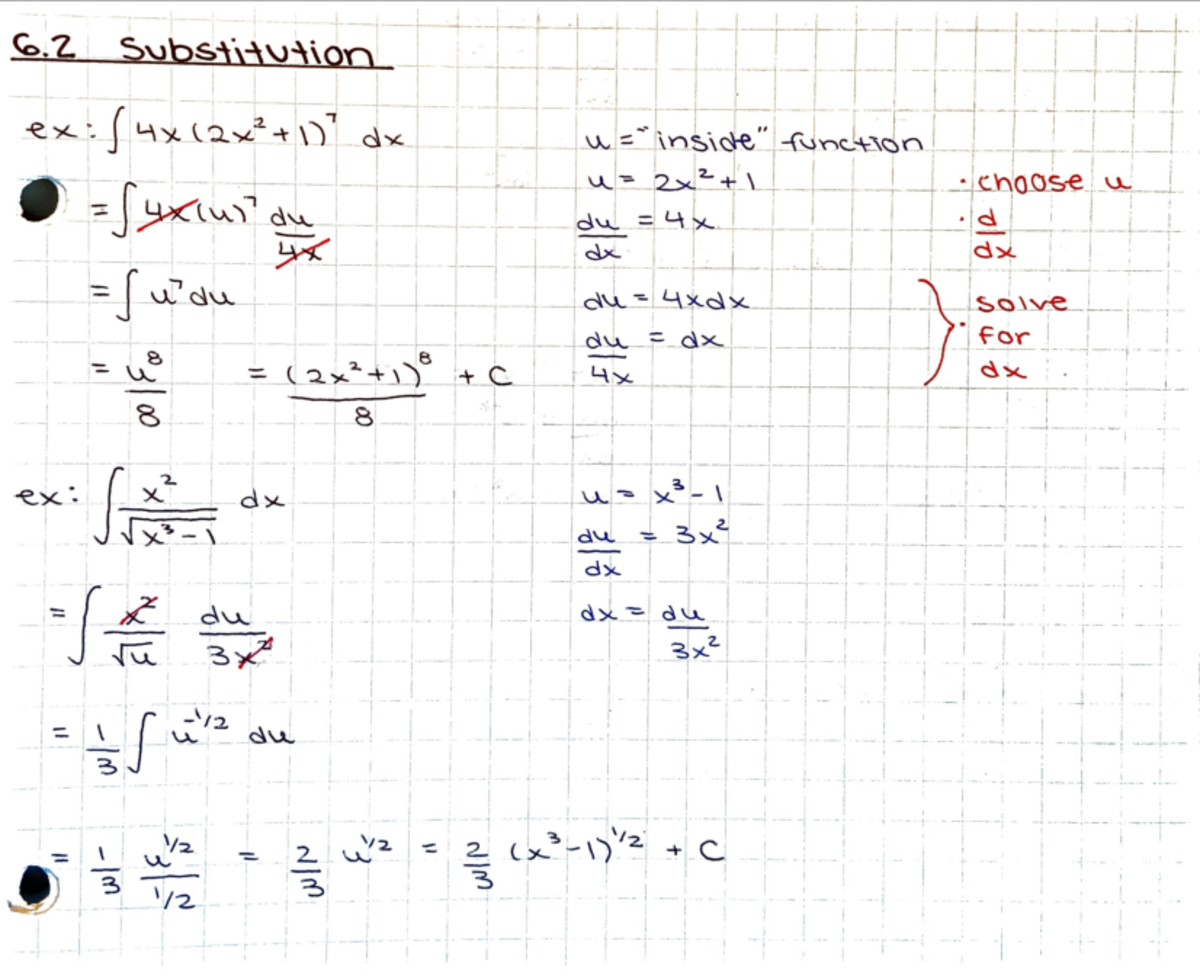 6.2 Substitution
ex: ∫ 4x(2x²+1)⁷ dx
= ∫ 4x(u)⁷ du/4x
= ∫ u⁷ du
= u⁸/8 = (2x²+1)⁸/8 + C
u = "inside" function
u = 2x²+1
du/dx = 4x
du = 4xdx
du/4x = dx
· choose u
· d/dx
· solve
for
dx
ex: ∫ x²/√(x³-1) dx
= ∫ x²/√u du/3x²
= 1/3 ∫ u^(-1/2) du
= 1/3 u^(1/2)/(1/2) = 2/3 u^(1/2) = 2/3 (x³-1)^(1/2) + C
u = x³-1
du/dx = 3x²
dx = du/3x²